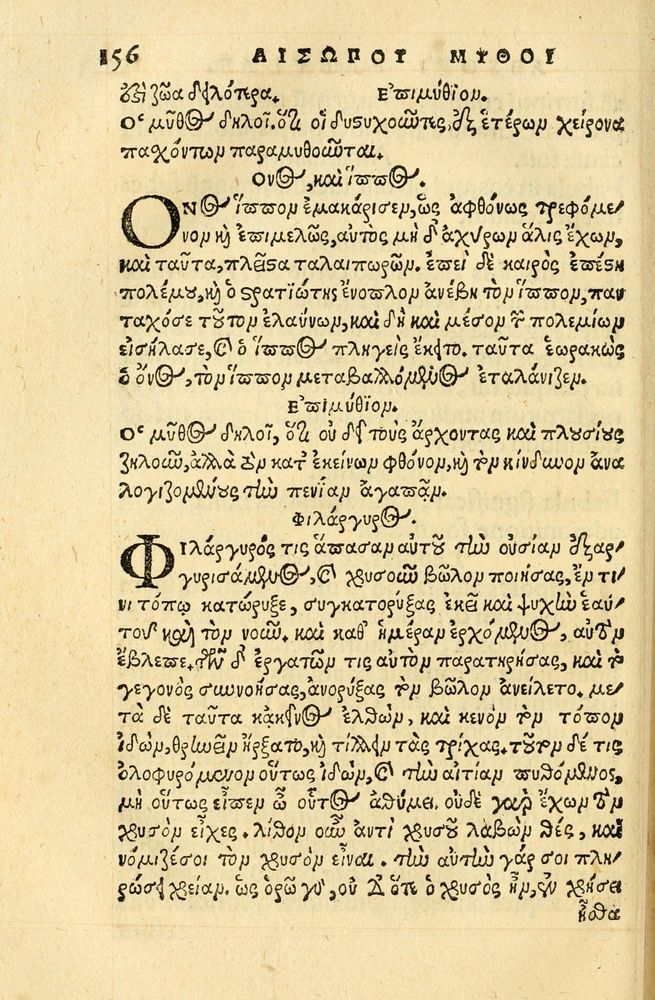 156 ΑΙΣΩΠΟΥ ΜΥΘΟΙ
ἐστὶ ζῶα δειλότερα. Επιμύθιον.
Ο μῦθος δηλοῖ, ὅτι οἱ δυστυχοῦντες, ἐξ ἑτέρων χείρονα
πασχόντων παραμυθοῦνται.
Ονος, καὶ ἵππος.
ΟΝος ἵππον ἐμακάρισεν, ὡς ἀφθόνως τρεφόμε
νον κ ἐπιμελῶς, αὐτὸς μὴ δ' ἀχύρων ἅλις ἔχων,
καὶ ταῦτα, πλεῖστα ταλαιπωρῶν. ἐπεὶ δὲ καιρὸς ἐπέστη
πολέμου, κ ὁ στρατιώτης ἔνοπλον ἀνέβη τὸν ἵππον, παν
ταχόσε τοῦτον ἐλαύνων, καὶ δὴ καὶ μέσον τῶν πολεμίων
εἰσήλασε, καὶ ὁ ἵππος πληγεὶς ἔκειτο. ταῦτα ἑωρακὼς
ὁ ὄνος, τὸν ἵππον μεταβαλλόμενος ἐταλάνιζεν.
Επιμύθιον.
Ο μῦθος δηλοῖ, ὅτι οὐ δεῖ τοὺς ἄρχοντας καὶ πλουσίους
ζηλοῦν, ἀλλὰ τὸν κατ' ἐκείνων φθόνον, κ τὸν κίνδυνον ἀνα
λογιζομένους τὴν πενίαν ἀγαπᾶν.
Φιλάργυρος.
ΦΙλάργυρός τις ἅπασαν αὐτοῦ τὴν οὐσίαν ἐξαρ
γυρισάμενος, καὶ χρυσοῦν βῶλον ποιήσας, ἔν τι
νι τόπῳ κατώρυξε, συγκατορύξας ἐκεῖ καὶ ψυχὴν ἑαυ
τοῦ καὶ τὸν νοῦν. καὶ καθ' ἡμέραν ἐρχόμενος, αὐτὸν
ἔβλεπε. τῶν δ' ἐργατῶν τις αὐτὸν παρατηρήσας, καὶ τὸ
γεγονὸς συννοήσας, ἀνορύξας τὸν βῶλον ἀνείλετο. με
τὰ δὲ ταῦτα κἀκεῖνος ἐλθὼν, καὶ κενὸν τὸν τόπον
ἰδὼν, θρηνεῖν ἤρξατο, κ τίλλειν τὰς τρίχας. τοῦτον δέ τις
ὀλοφυρόμενον οὕτως ἰδὼν, καὶ τὴν αἰτίαν πυθόμενος,
μὴ οὕτως εἶπεν ὦ οὗτος ἀθύμει. οὐδὲ γὰρ ἔχων τὸν
χρυσὸν εἶχες. λίθον οὖν ἀντὶ χρυσοῦ λαβὼν θές, καὶ
νόμιζέ σοι τὸν χρυσὸν εἶναι. τὴν αὐτὴν γάρ σοι πλη
ρώσει χρείαν. ὡς ὁρῶ γὰρ, οὐ δ' ὅτε ὁ χρυσὸς ἦν, ἐν χρήσει
ἦσθα